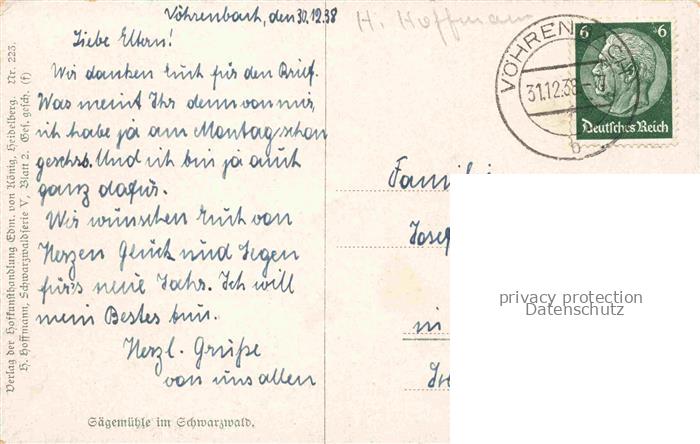 Vöhrenbach, den 30.12.38
Liebe Eltern!
Wir danken Euch für den Brief.
Was meint Ihr denn von mir,
ich habe ja am Montag schon
geschrb. Und ich bin ja auch
ganz dafür.
Wir wünschen Euch von
Herzen Glück und Segen
für's neue Jahr. Ich will
mein Bestes tun.
Herzl. Grüße
von uns allen
Sägemühle im Schwarzwald.
Verlag der Hofkunsthandlung Edm. von König, Heidelberg. Nr. 223.
H. Hoffmann, Schwarzwaldserie V, Blatt 2. Ges. gesch. (f)
H. Hoffmann
VÖHRENBACH
31.12.38
b
6 6
Deutsches Reich
Familie
Josef
in
privacy protection
Datenschutz